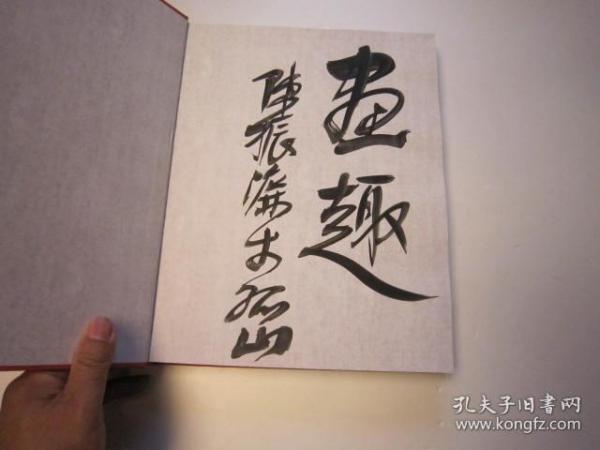 画趣
陈振濂于孤山
孔夫子旧书网
www.kongfz.com